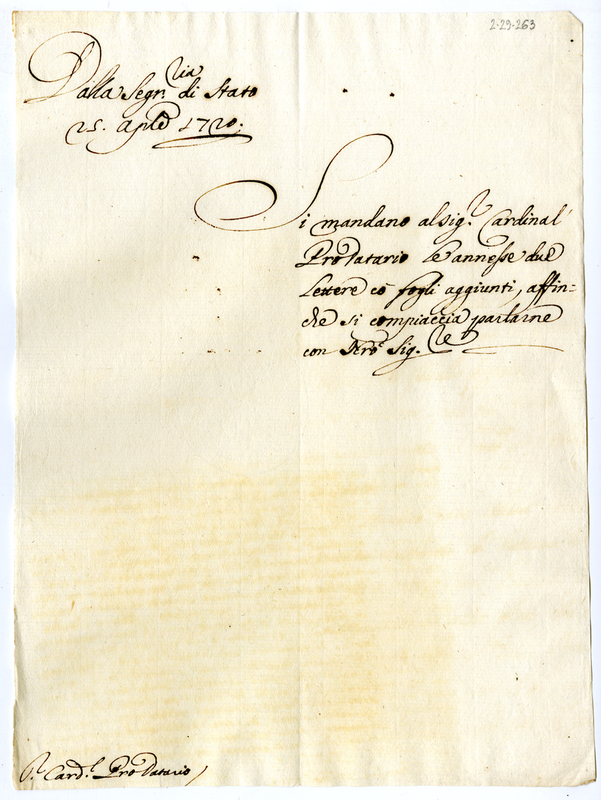 2-29-263
Dalla Segr.ria di Stato
25. Aple 1720.
Si mandano al Sig.r Cardinal
ProDatario le annesse due
Lettere cõ fogli aggiunti, affin=
che si compiaccia parlarne
con Nrõ Sig.re
S.r Card.l ProDatario